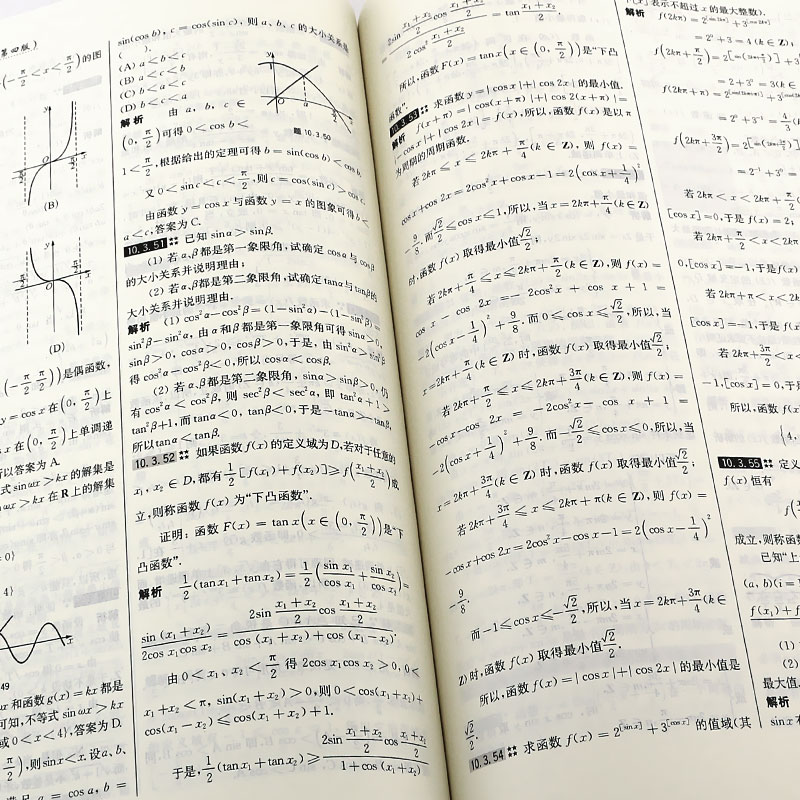 第四版)
(-π/2<x<π/2)的图
(B)
(D)
(-π/2 π/2)是偶函数,
y=cos x 在(0,π/2)上
x 在(0,π/2)上单调递
所以答案为 A.
式 sin αx>kx 的解集是
>kx 在 R 上的解集
=0}
4}
49
和函数 g(x)=kx 都是
可知,不等式 sin αx>kx
或 0<x<4},答案为 D.
则 sin x<x.设 a、b、
a=cos a, b=
sin(cos b), c=cos(sin c), 则 a、b、c 的大小关系是
( ).
(A) a<b<c
(B) a<c<b
(C) b<a<c
(D) b<c<a
题 10.3.50
解析 由 a, b, c ∈
(0, π/2)可得 0<cos b<
1<π/2,根据给出的定理可得 b=sin(cos b)<cos b.
又 0<sin c<c<π/2,则 c=cos(sin c)>cos c.
由函数 y=cos x 与函数 y=x 的图象可得 b<
a<c,答案为 C.
10.3.51 已知 sin α>sin β.
(1) 若 α、β 都是第一象限角,试确定 cos α 与 cos β
的大小关系并说明理由;
(2) 若 α、β 都是第二象限角,试确定 tan α 与 tan β 的
大小关系并说明理由.
解析 (1) cos²α-cos²β=(1-sin²α)-(1-sin²β)=
sin²β-sin²α, 由 α 和 β 都是第一象限可得 sin α>0,
sin β>0, cos α>0, cos β>0,于是,由 sin²α>sin²β
得 cos²α-cos²β<0,所以 cos α<cos β.
(2) 若 α、β 都是第二象限角, sin α>sin β>0, 仍
有 cos²α<cos²β, 则 sec²β<sec²α, 即 tan²α+1>
tan²β+1,而 tan α<0, tan β<0,于是-tan α>-tan β,
所以 tan α<tan β.
10.3.52 如果函数 f(x) 的定义域为 D,若对于任意的
x₁, x₂ ∈ D,都有 1/2[f(x₁)+f(x₂)]≥f((x₁+x₂)/2)成
立,则称函数 f(x) 为“下凸函数”.
证明: 函数 F(x)=tan x(x∈(0, π/2))是“下
凸函数”.
解析 1/2(tan x₁+tan x₂)=1/2(sin x₁/cos x₁+sin x₂/cos x₂)=
sin(x₁+x₂)/(2cos x₁cos x₂)=(2sin (x₁+x₂)/2 cos (x₁+x₂)/2)/(cos(x₁+x₂)+cos(x₁-x₂)).
由 0<x₁、x₂<π/2 得 2cos x₁cos x₂>0, 0<
x₁+x₂<π, sin(x₁+x₂)>0,则 0<cos(x₁+x₂)+
cos(x₁-x₂)≤cos(x₁+x₂)+1.
于是, 1/2(tan x₁+tan x₂)≥(2sin (x₁+x₂)/2 cos (x₁+x₂)/2)/(1+cos(x₁+x₂))
2sin (x₁+x₂)/2 cos (x₁+x₂)/2 / 2cos² (x₁+x₂)/2 = tan (x₁+x₂)/2
所以,函数 F(x)=tan x(x∈(0, π/2))是“下凸
函数”.
10.3.53 求函数 y=|cos x|+|cos 2x| 的最小值.
解析 f(x+π)=|cos(x+π)|+|cos 2(x+π)|=
|-cos x|+|cos 2x|=f(x),所以,函数 f(x) 是以 π
为周期的周期函数.
若 2kπ≤x≤2kπ+π/4(k∈Z), 则 f(x)=
cos x+cos 2x=2cos²x+cos x-1=2(cos x+1/4)²
-9/8, 而 √2/2≤cos x≤1,所以,当 x=2kπ+π/4(k∈Z)
时,函数 f(x) 取得最小值 √2/2;
若 2kπ+π/4≤x≤2kπ+π/2(k∈Z), 则 f(x)=
cos x - cos 2x = -2cos²x + cos x + 1 =
-2(cos x-1/4)²+9/8, 而 0≤cos x≤√2/2,所以,当
x=2kπ+π/4(k∈Z) 时,函数 f(x) 取得最小值 √2/2;
若 2kπ+π/2≤x≤2kπ+3π/4(k∈Z), 则 f(x)=
-cos x-cos 2x = -2cos²x - cos x + 1 =
-2(cos x+1/4)²+9/8, 而 -√2/2≤cos x≤0,所以,当
x=2kπ+3π/4(k∈Z) 时,函数 f(x) 取得最小值 √2/2;
若 2kπ+3π/4≤x≤2kπ+π(k∈Z), 则 f(x)=
-cos x+cos 2x=2cos²x-cos x-1=2(cos x-1/4)²
-9/8.
而 -1≤cos x≤-√2/2,所以,当 x=2kπ+3π/4(k∈
Z) 时,函数 f(x) 取得最小值 √2/2.
所以,函数 f(x)=|cos x|+|cos 2x| 的最小值是
√2/2.
10.3.54 求函数 f(x)=2^[sin x]+3^[cos x] 的值域(其
表示不超过 x 的最大整数).
解析
=2⁰+3=4(k∈Z);
=2+3⁰=3(k∈
若 2kπ<x<2kπ+π/2
[cos x]=0,于是 f(x)=2;
若 2kπ+π/2<x<2kπ
0,[cos x]=-1,于是 f(x)
若 2kπ+π<x<2kπ
[cos x]=-1,于是 f(x)
若 2kπ+3π/2<x<
-1,[cos x]=0,于是 f(x)
所以,函数 f(x)
10.3.55 定义
f(x) 恒有
成立,则称函数
已知“上
(a, b)(i=
(1)
(2)
最大值.
解析
sin x